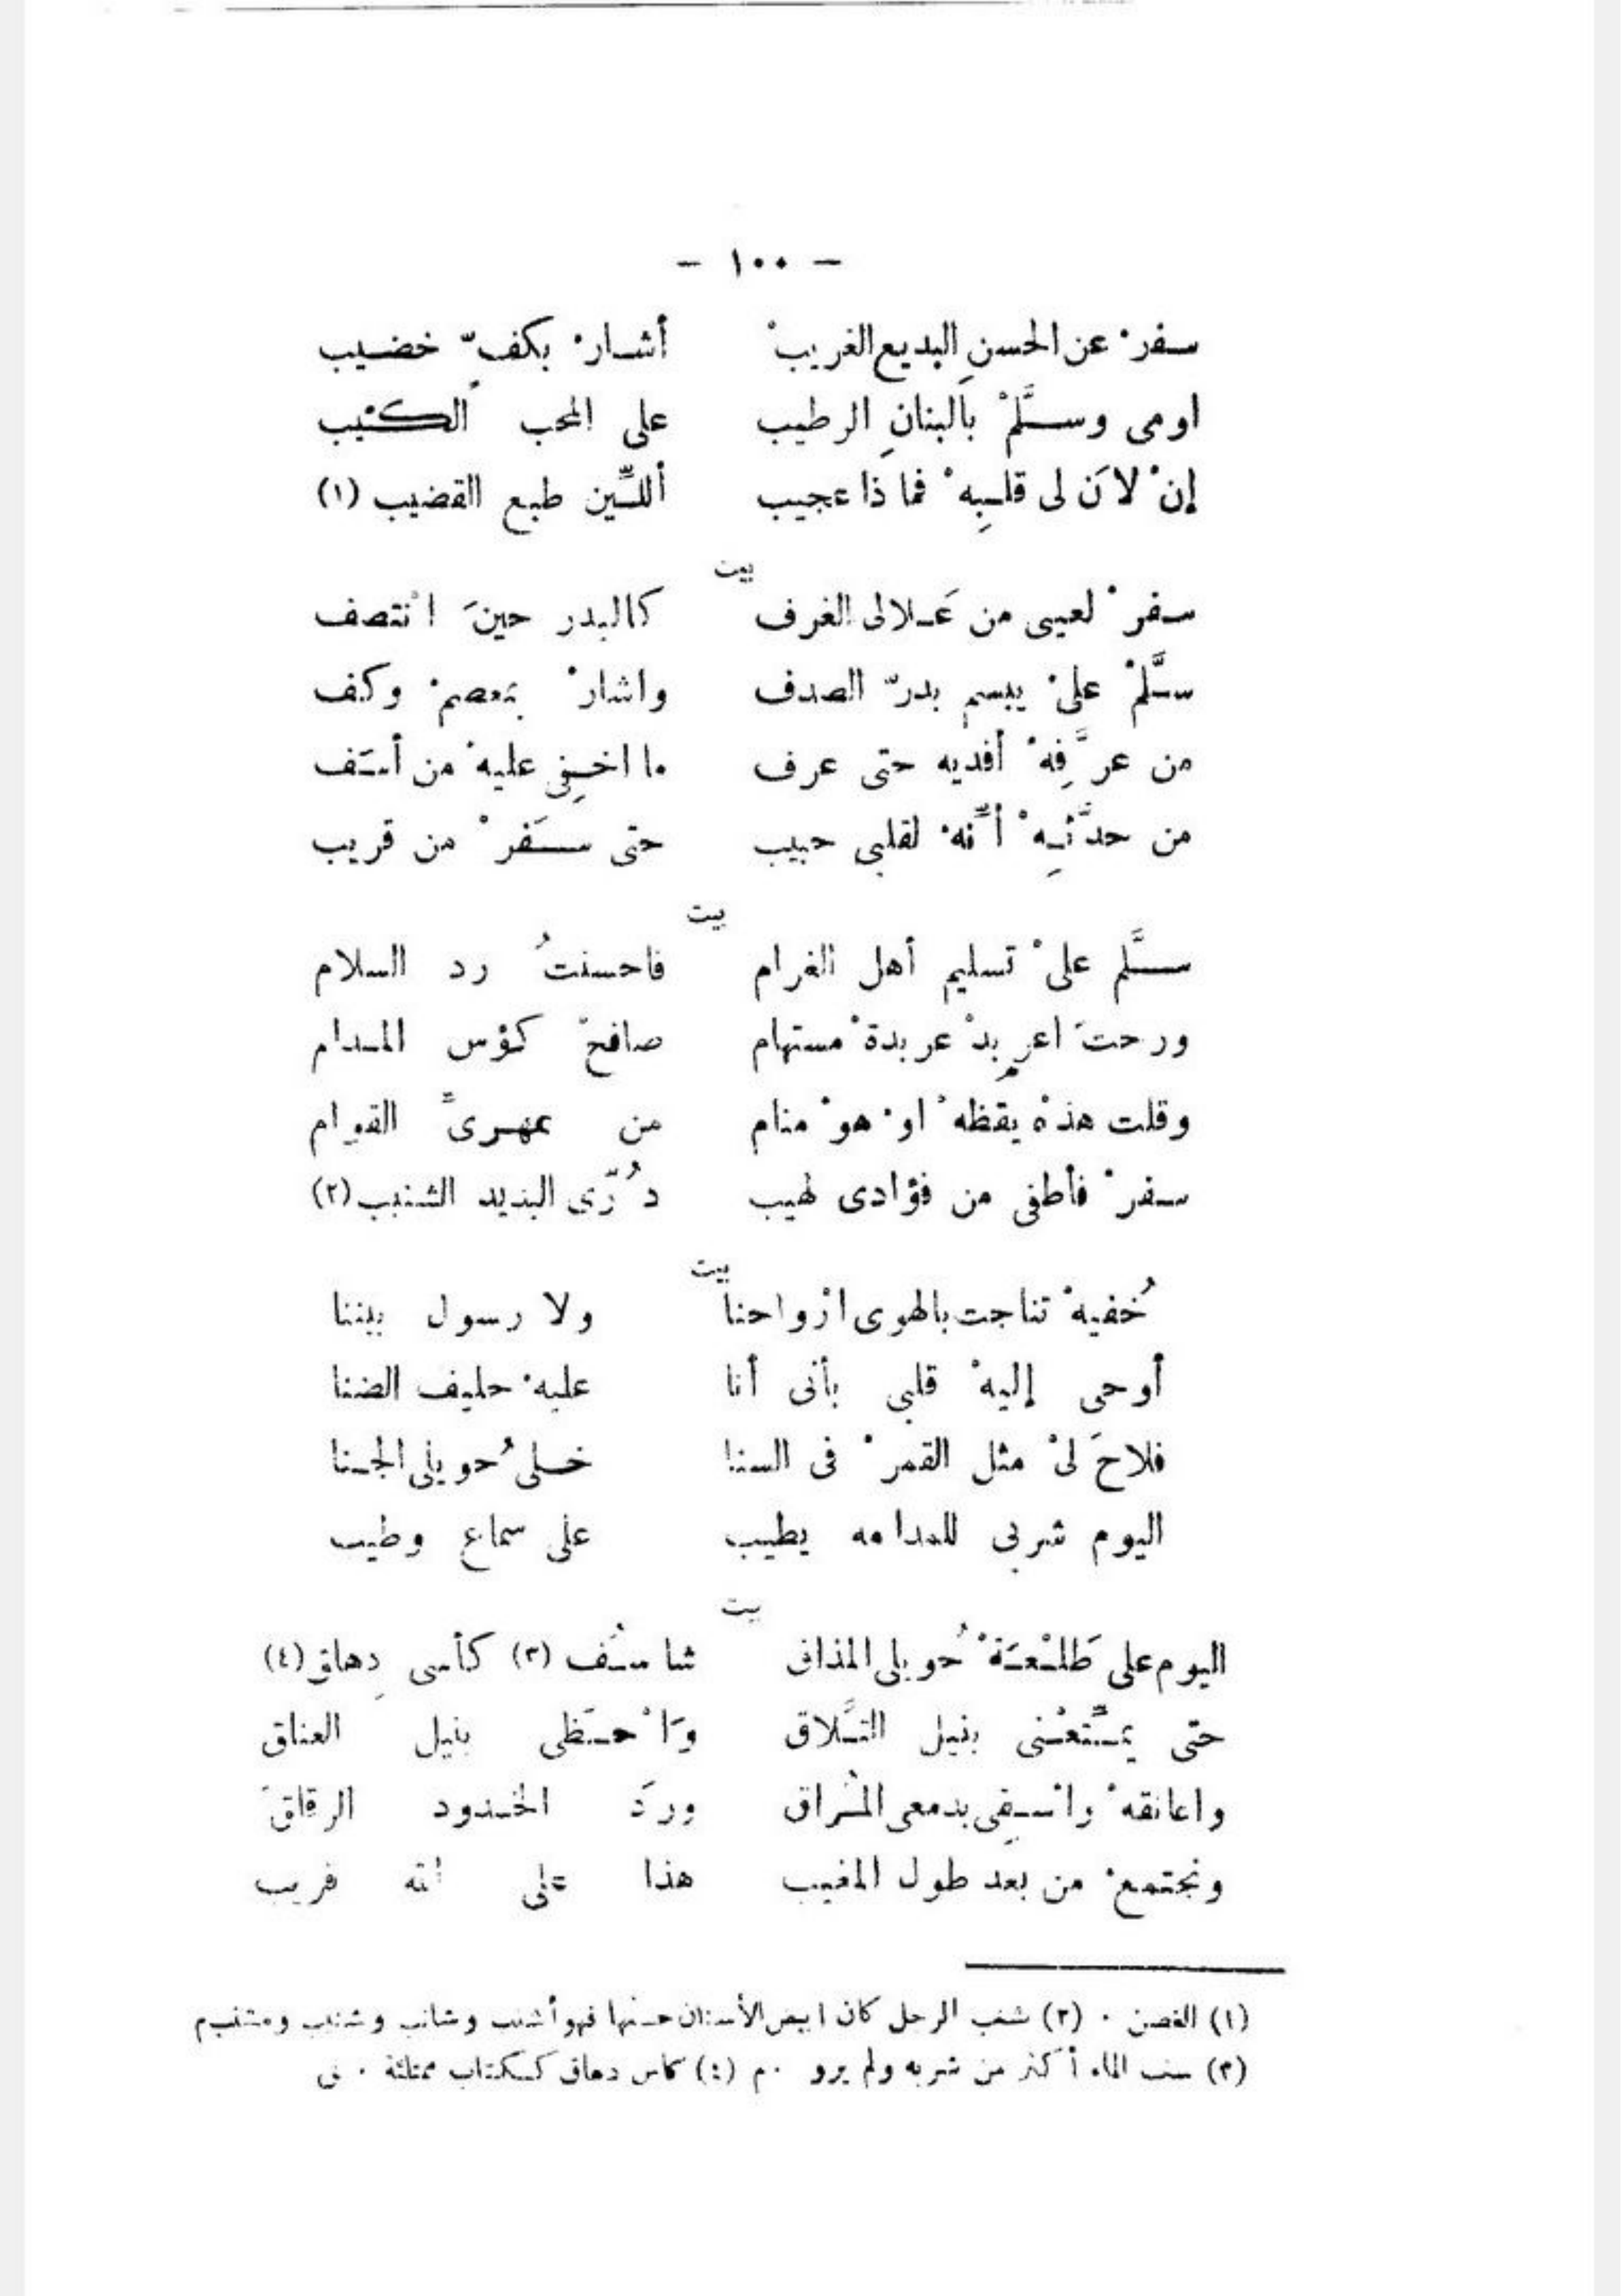 - ١٠٠ -
سفرْ عن الحسنِ البديع الغريبْ أشارْ بكفٍّ خضيب
اومى وسلَّمْ بالبنانِ الرطيب على المحب الكئيب
إنْ لانَ لى قلبِهْ فما ذا عجيب أللِّين طبع القضيب (١)
بيت
سفرْ لعينى من عَلالى الغرف كالبدر حينَ انْتصف
سلَّمْ علىْ يبسم بدرّ الصدف واشارْ بمعصمْ وكف
من عرَّفِهْ أفديه حتى عرف ما اخفِى عليهْ من أسَف
من حدَّثِهْ أنَّهْ لقلبى حبيب حتى سَفرْ من قريب
بيت
سلَّم علىْ تسليم أهل الغرام فاحسنتُ رد السلام
ورحتَ اعرِبدْ عربدةْ مستهام صافحْ كؤس المدام
وقلت هذهْ يقظهْ اوْ هوْ منام من سمهرىِّ القوام
سفرْ فأطفى من فؤادى لهيب دُرّى البديد الشنيب (٢)
بيت
خُفيهْ تناجت بالهوى ارْواحنا ولا رسول بيننا
أوحى إليهْ قلبى بأنى أنا عليهْ حليف الضنا
فلاحَ لىْ مثل القمرْ فى السنا خلى حُويلى الجنا
اليوم شربى للمدامه يطيب على سماع وطيب
بيت
اليوم على طَلْعَةْ حُويلى المذاق شا سْنَف (٣) كأسى دِهاق (٤)
حتّى يمتِّعْنى بنيل التَّلاق وَاْحتَظى بنيل العناق
واعانقهْ واسْقِى بدمعى المُراق وردَ الخدود الرقاقْ
ونجتمعْ من بعد طول المغيب هذا على الله قريب
(١) الغصن . (٢) شنب الرجل كان ابيض الأسنان حسنها فهو أشنب وشانب وشنيب ومشنب م
(٣) سنف الماء أكثر من شربه ولم يرو . م (٤) كاس دهاق ككتاب ممتلئة .